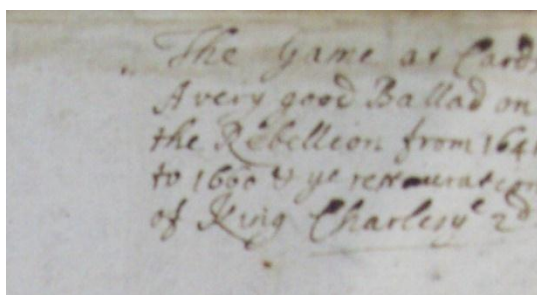 The Game at Cards
A very good Ballad on
the Rebellion from 1641
to 1660 & ye restauration
of King Charles ye 2d